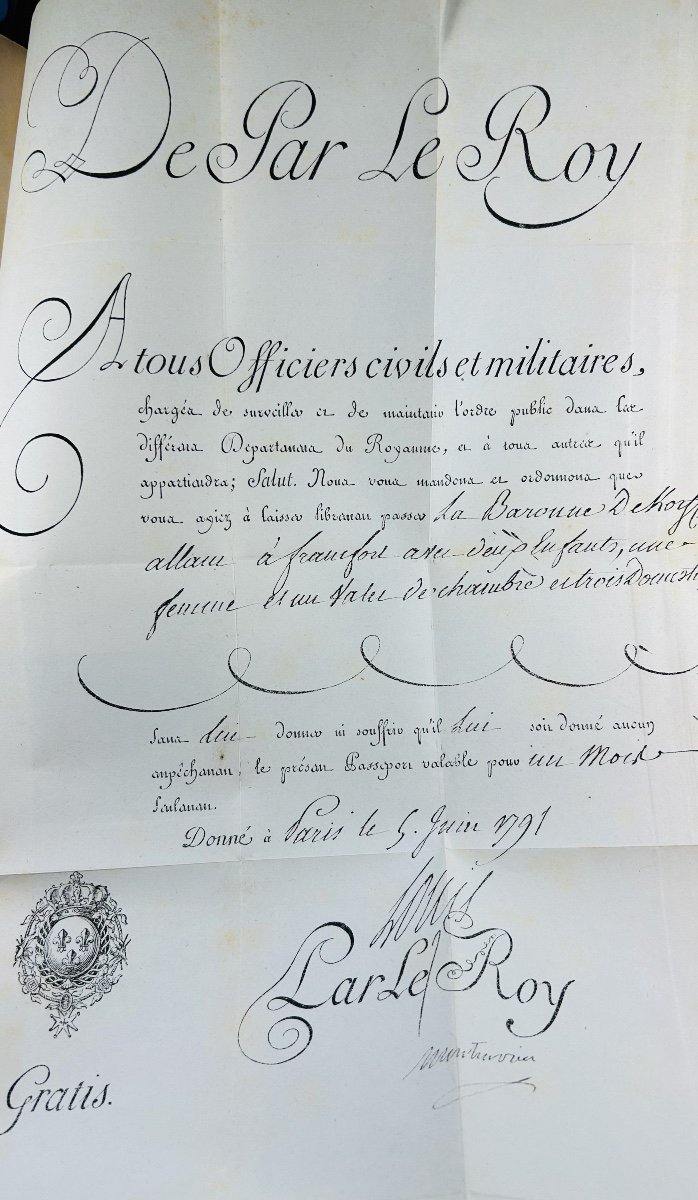 De Par Le Roy
A tous Officiers civils et militaires,
chargés de surveiller et de maintenir l'ordre public dans les
différens Departemens du Royaume, et à tous autres qu'il
appartiendra; Salut. Nous vous mandons et ordonnons que
vous ayiez à laisser librement passer La Baronne De Korff
allant à francfort avec deux Enfants, une
femme et un Valet de chambre et trois Domesti
Sans lui donner ni souffrir qu'il lui soit donné aucun
empêchement, le présent Passeport valable pour un Mois
Seulement.
Donné à Paris le 5. Juin 1791
Louis
Par Le Roy
montmorin
Gratis.